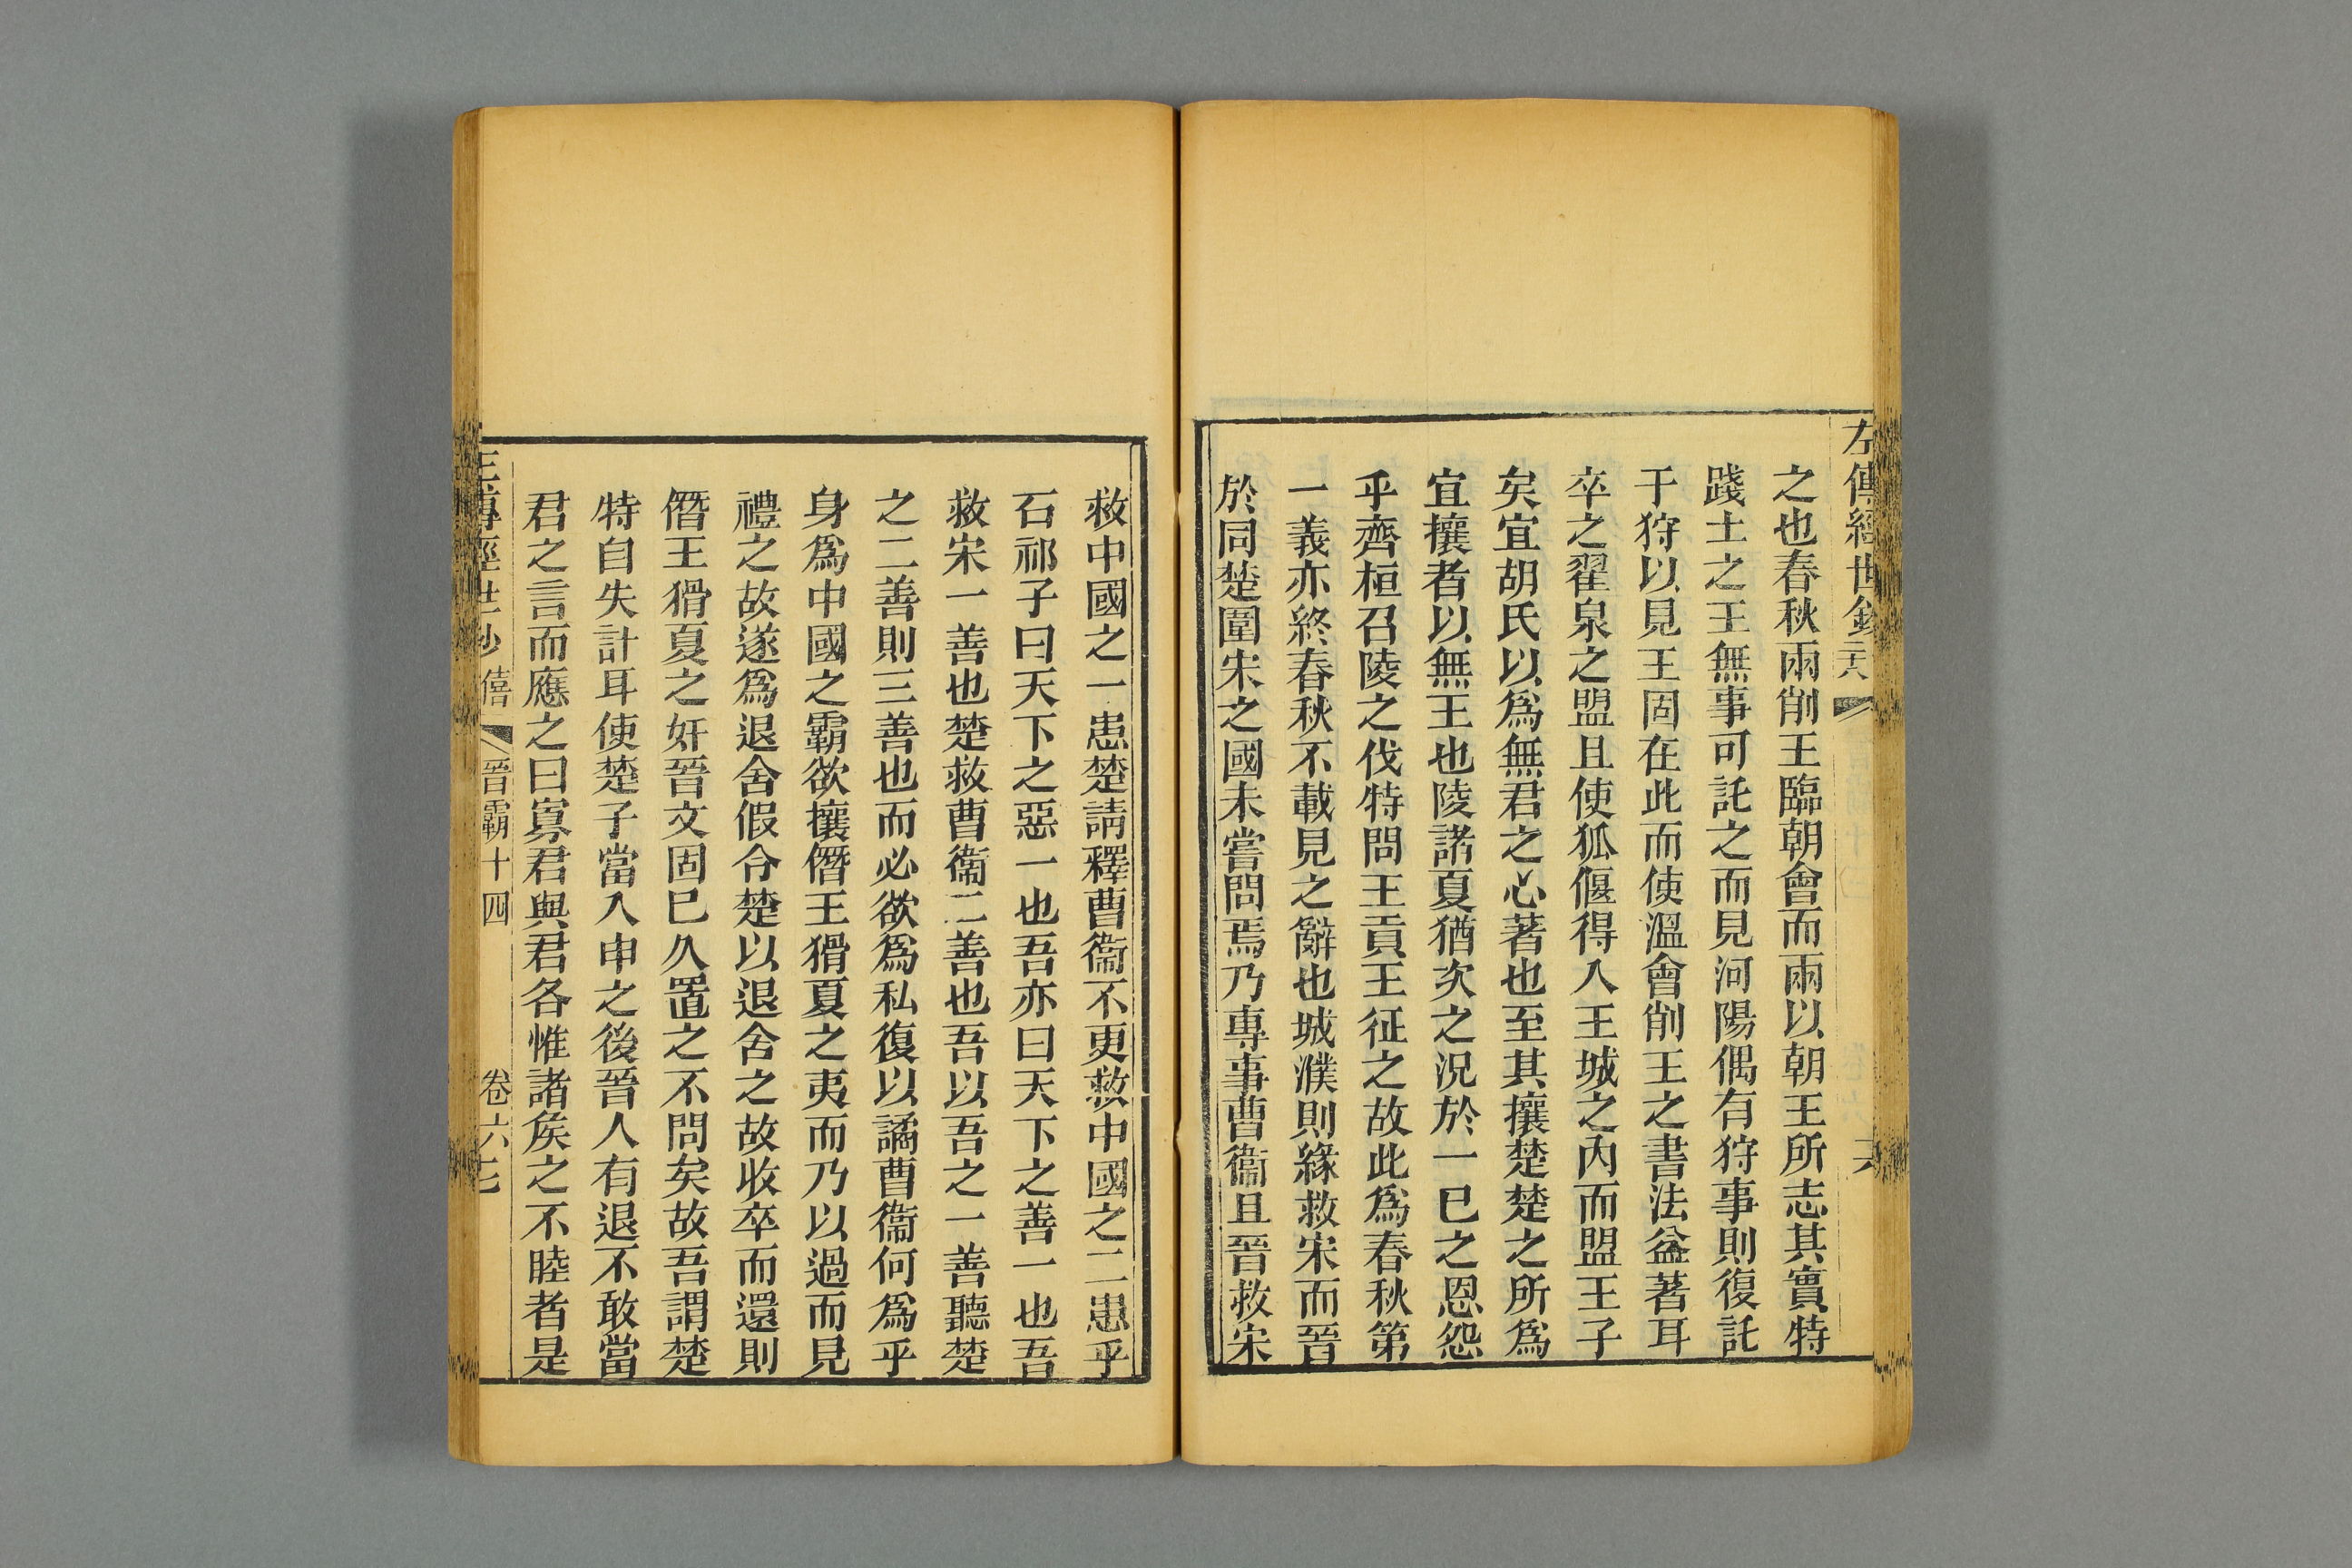 左傳經世鈔
之也春秋兩削王臨朝會而兩以朝王所志其實特
踐土之王無事可託之而見河陽偶有狩事則復託
于狩以見王固在此而使溫會削王之書法益著耳
卒之翟泉之盟且使狐偃得入王城之內而盟王子
矣宜胡氏以爲無君之心著也至其攘楚楚之所爲
宜攘者以無王也陵諸夏猶次之況於一已之恩怨
乎齊桓召陵之伐特問王貢王征之故此爲春秋第
一義亦終春秋不載見之辭也城濮則緣救宋而晉
於同楚圍宋之國未嘗問焉乃專事曹衞且晉救宋
救中國之一患楚請釋曹衞不更救中國之二患乎
石祁子曰天下之惡一也吾亦曰天下之善一也吾
救宋一善也楚救曹衞二善也吾以吾之一善聽楚
之二善則三善也而必欲爲私復以譎曹衞何爲乎
身爲中國之霸欲攘僭王猾夏之夷而乃以過而見
禮之故遂爲退舍假令楚以退舍之故收卒而還則
僭王猾夏之奸晉文固已久置之不問矣故吾謂楚
特自失計耳使楚子當入申之後晉人有退不敢當
君之言而應之曰寡君與君各惟諸矦之不睦者是
左傳經世鈔 僖 晉霸十四 卷六